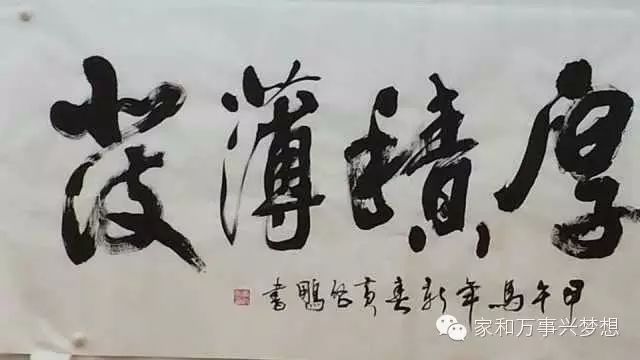 厚積薄發
甲午馬年新春黄啓鵬書
家和万事兴梦想